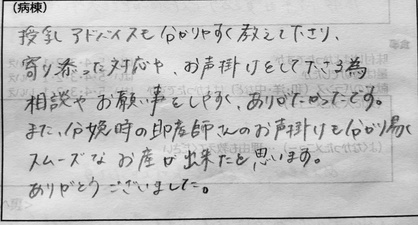 (病棟)
授乳アドバイスも分かりやすく教えて下さり、
寄り添った対応や、お声掛けをして下さる為
相談やお願い事をしやすく、ありがたかったです。
また、分娩時の助産師さんのお声掛けも分かり易く
スムーズなお産が出来たと思います。
ありがとうございました。